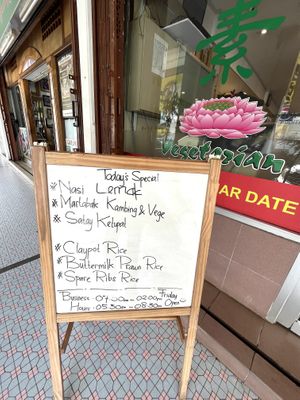 素
Vegetarian
AR DATE
Today's Special
* Nasi Lemak
* Martabak Kambing & Vege
* Satay Ketupat
* Claypot Rice
* Buttermilk Prawn Rice
* Spare Ribs Rice
Business
Friday
Hours
Open